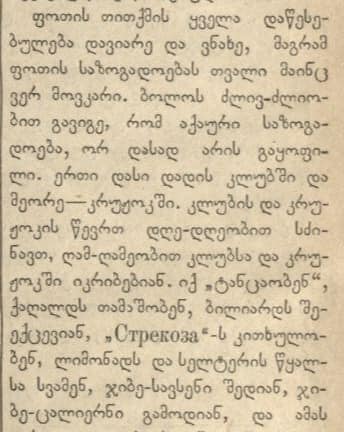 ფოთის თითქმის ყველა დაწესე-
ბულება დავიარე და ვნახე, მაგრამ
ფოთის საზოგადოებას თვალი მაინც
ვერ მოვკარი. ბოლოს ძლივ-ძლიო-
ბით გავიგე, რომ აქაური საზოგა-
დოება, ორ დასად არის გაყოფი-
ლი. ერთი დასი დადის კლუბში და
მეორე—კრუჟოკში. კლუბის და კრუ-
ჟოკის წევრთ დღე-დღეობით სძი-
ნავთ, ღამ-ღამეობით კლუბსა და კრუ-
ჟოკში იკრიბებიან. იქ „ტანცაობენ“,
ქაღალდს თამაშობენ, ბილიარდს შე-
ექცევიან, „Стрекоза“-ს კითხულო-
ბენ, ლიმონადს და სელტერის წყალ-
სა სვამენ, ჯიბე-სავსენი შედიან, ჯი-
ბე-ცალიერნი გამოდიან, და ამას